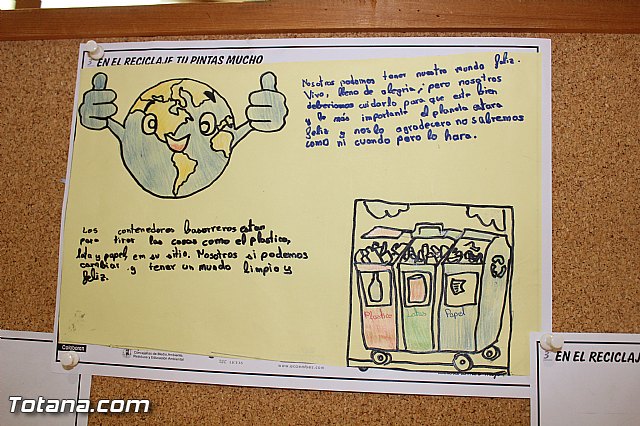 EN EL RECICLAJE TU PINTAS MUCHO
Nosotros podemos tener nuestro mundo feliz.
Vivo, lleno de alegria, pero nosotros
deberiamos cuidarlo para que este bien
y lo más importante el planeta estara
feliz y nos lo agradecera no sabremos
como ni cuando pero lo hara.
Los contenedores basureros estan
para tirar las cosas como el plastico,
lata y papel en su sitio. Nosotros si podemos
cambiar y tener un mundo limpio y
feliz.
Plastico
Latas
Papel
Colaboran
EN EL RECICLAJ
Totana.com